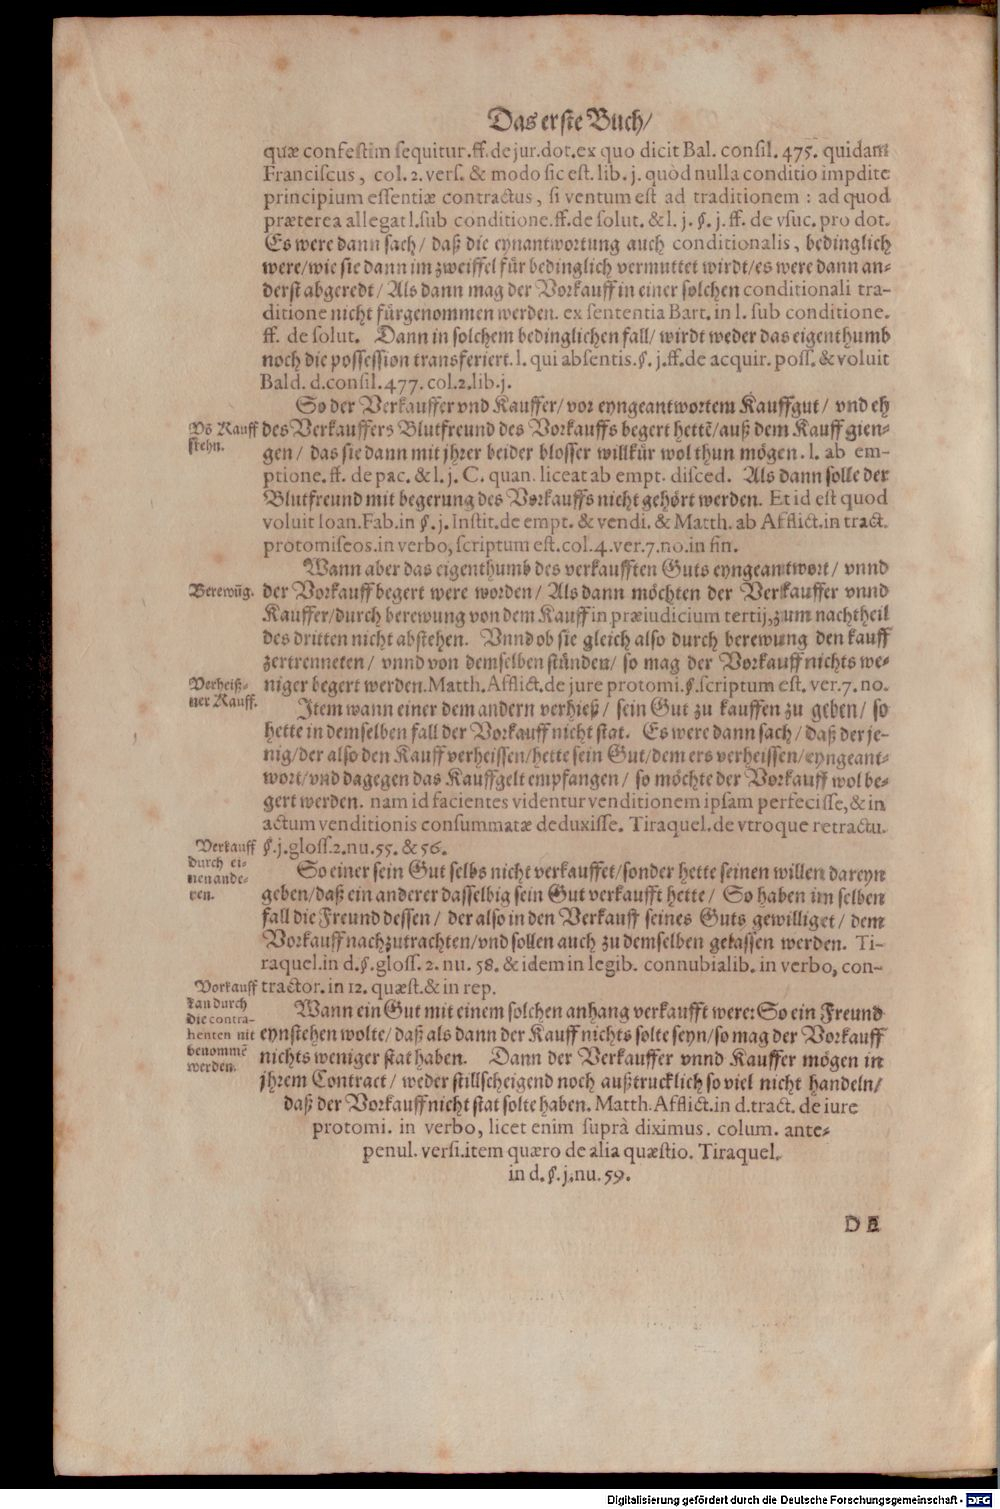 Das erste Buch/
quæ confestim sequitur. ff. de jur. dot. ex quo dicit Bal. consil. 475. quidam
Franciscus, col. 2. vers. & modo sic est. lib. j. quòd nulla conditio impdite
principium essentiæ contractus, si ventum est ad traditionem: ad quod
præterea allegat l. sub conditione. ff. de solut. & l. j. §. j. ff. de vsuc. pro dot.
Es were dann sach/ daß die eynantwortung auch conditionalis, bedinglich
were/ wie sie dann im zweiffel fůr bedinglich vermuttet wirdt/ es were dann an-
derst abgeredt/ Als dann mag der Vorkauff in einer solchen conditionali tra-
ditione nicht fůrgenommen werden. ex sententia Bart. in l. sub conditione.
ff. de solut. Dann in solchem bedinglichen fall/ wirdt weder das eigenthumb
noch die possession transferiert. l. qui absentis. §. j. ff. de acquir. poss. & voluit
Bald. d. consil. 477. col. 2. lib. j.
So der Verkauffer vnd Kauffer/ vor eyngeantwortem Kauffgut/ vnd eh
Vs Kauff
stehn.
des Verkauffers Blutfreund des Vorkauffs begert hettē/ auß dem Kauff gien-
gen/ das sie dann mit jhrer beider blosser willkůr wol thun mögen. l. ab em-
ptione. ff. de pac. & l. j. C. quan. liceat ab empt. disced. Als dann solle der
Blutfreund mit begerung des Vorkauffs nicht gehört werden. Et id est quod
voluit Ioan. Fab. in §. j. Instit. de empt. & vendi. & Matth. ab Afflict. in tract.
protomiseos. in verbo, scriptum est. col. 4. ver. 7. no. in fin.
Wann aber das eigenthumb des verkaufften Guts eyngeantwort/ vnnd
Berewūg.
der Vorkauff begert were worden/ Als dann möchten der Verkauffer vnnd
Kauffer/ durch berewung von dem Kauff in præiudicium tertij, zum nachtheil
des dritten nicht abstehen. Vnnd ob sie gleich also durch berewung den kauff
zertrenneten/ vnnd von demselben stůnden/ so mag der Vorkauff nichts we-
Verheiß-
ner Kauff.
niger begert werden. Matth. Afflict. de jure protomi. §. scriptum est. ver. 7. no.
Item wann einer dem andern verhieß/ sein Gut zu kauffen zu geben/ so
hette in demselben fall der Vorkauff nicht stat. Es were dann sach/ daß der je-
nig/ der also den Kauff verheissen/ hette sein Gut/ dem ers verheissen/ eyngeant-
wort/ vnd dagegen das Kauffgelt empfangen/ so möchte der Vorkauff wol be-
gert werden. nam id facientes videntur venditionem ipsam perfecisse, & in
actum venditionis consummatæ deduxisse. Tiraquel. de vtroque retractu.
§. j. gloss. 2. nu. 55. & 56.
Verkauff
durch ei-
nen ande-
ren.
So einer sein Gut selbs nicht verkauffet/ sonder hette seinen willen dareyn
geben/ daß ein anderer dasselbig sein Gut verkaufft hette/ So haben im selben
fall die Freund dessen/ der also in den Verkauff seines Guts gewilliget/ dem
Vorkauff nachzutrachten/ vnd sollen auch zu demselben gelassen werden. Ti-
raquel. in d. §. gloss. 2. nu. 58. & idem in legib. connubialib. in verbo, con-
tractor. in 12. quæst. & in rep.
Vorkauff
kan durch
die contra-
henten nit
benommē
werden.
Wann ein Gut mit einem solchen anhang verkaufft were: So ein Freund
eynstehen wolte/ daß als dann der Kauff nichts solte seyn/ so mag der Vorkauff
nichts weniger stat haben. Dann der Verkauffer vnnd Kauffer mögen in
jhrem Contract/ weder stillscheigend noch außtrucklich so viel nicht handeln/
daß der Vorkauff nicht stat solte haben. Matth. Afflict. in d. tract. de iure
protomi. in verbo, licet enim suprà diximus. colum. ante-
penul. versi. item quæro de alia quæstio. Tiraquel.
in d. §. j. nu. 59.
Digitalisierung gefördert durch die Deutsche Forschungsgemeinschaft - DFG